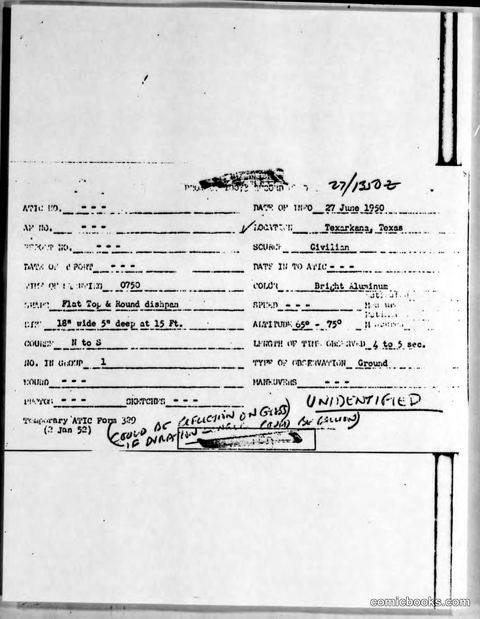 27/1350Z
ATIC NO. - - - DATE OF INFO 27 June 1950
AF NO. - - - ✓ LOCATION Texarkana, Texas
REPORT NO. - - - SOURCE Civilian
DATE OF REPORT - - - DATE IN TO ATIC - - -
TIME OF SIGHTING 0750 COLOR Bright Aluminum
SHAPE Flat Top & Round dishpan SPEED - - -
SIZE 18" wide 5" deep at 15 Ft. ALTITUDE 65° - 75°
COURSE N to S LENGTH OF TIME OBSERVED 4 to 5 sec.
NO. IN GROUP 1 TYPE OF OBSERVATION Ground
SOUND - - - MANEUVERS - - -
PHOTOS - - - SKETCHES - - - UNIDENTIFIED
Temporary ATIC Form 329
(2 Jan 52)
(COULD BE REFLECTION ON GLASS)
IF DURATION COULD BE BALLOON)
comicbooks.com